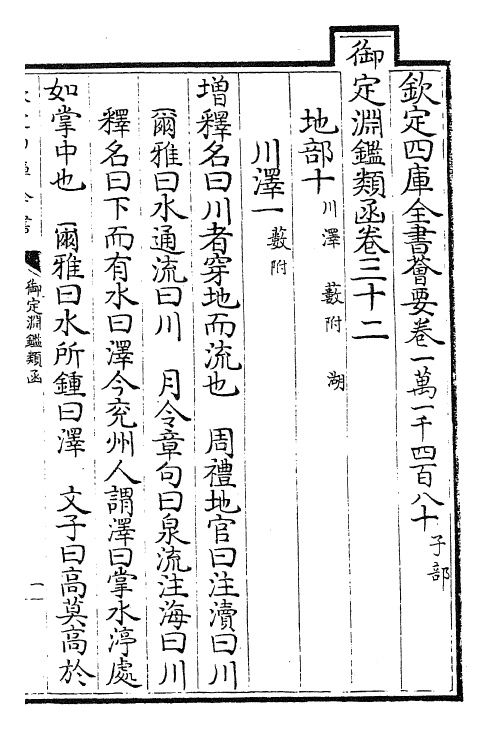 欽定四庫全書薈要卷一萬一千四百八十 子部
御定淵鑑類函卷三十二
地部十 川澤 藪附 湖
川澤一 藪附
增釋名曰川者穿地而流也 周禮地官曰注瀆曰川
爾雅曰水通流曰川 月令章句曰泉流注海曰川
釋名曰下而有水曰澤今兖州人謂澤曰掌水渟處
如掌中也 爾雅曰水所鍾曰澤 文子曰高莫高於
御定淵鑑類函
一